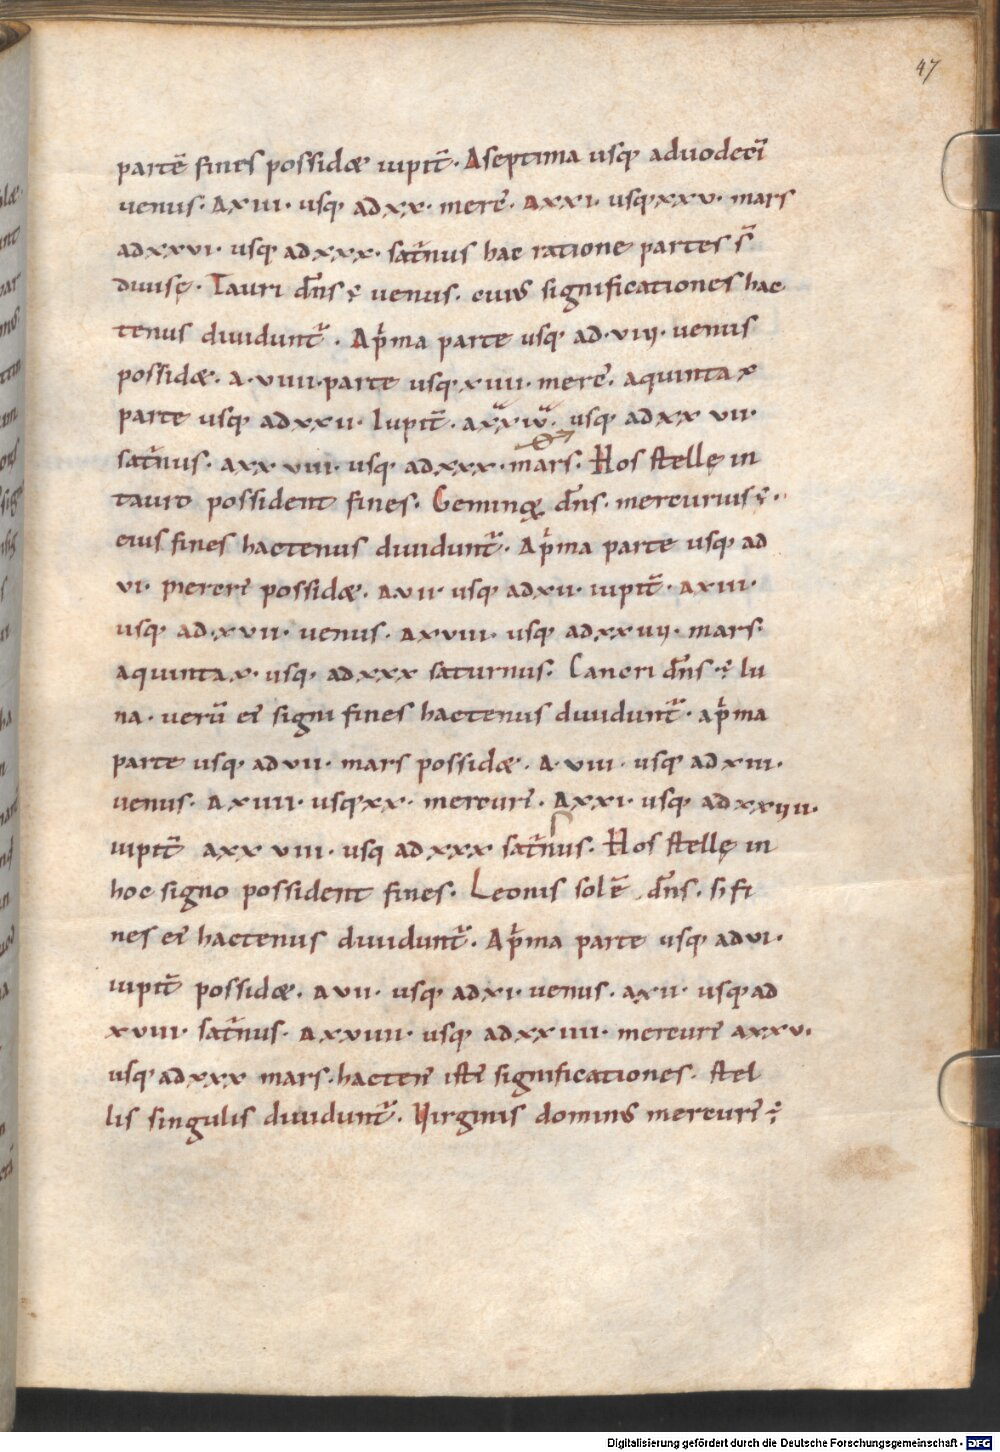 47
partē fines possidæ iupit̄. Aseptima usq; aduodecī
uenus. Axiii. usq; adxx. merc̄. Axxi. usq;xxv. mars
adxxvi. usq; adxxx. sat̄nus hac ratione partes s̄
diuisę. Tauri dn̄s ÷ uenus. cuius significationes hac
tenus diuidunt̄. Ap̄ma parte usq; ad.viii. uenus
possidæ. a.viiii.parte usq;xiiii. merc̄. aquinta x
parte usq; adxxii. Iupit̄. axxiii. usq; adxx vii.
sat̄nus. axx viii. usq; adxxx. mars. Hos stellę in
tauro possident fines. Geminoꝝ dn̄s. mercurius ÷.
eius fines hactenus diuidunt̄. Ap̄ma parte usq; ad
vi. mercri possidæ. a.vii. usq; adxii. iupit̄. axiii.
usq; ad.xvii. uenus. axviii. usq; adxxiiii. mars.
aquintax. usq; adxxx saturnus. Cancri dn̄s ÷ lu
na. uerū ei signi fines hactenus diuidunt̄. ap̄ma
parte usq; advii. mars possidæ. a.viii. usq; adxiii.
uenus. axiiii. usq;xx. mercuri. Axxi. usq; adxxiiii.
iupit̄ axx viii. usq adxxx sat̄nus. Hos stellę in
hoc signo possident fines. Leonis sol ē dn̄s. si fi
nes ei hactenus diuidunt̄. Ap̄ma parte usq; advi.
iupit̄ possidæ. a.vii. usq; adxi. uenus. axii. usq;ad
xviii. sat̄nus. Axxviiii. usq; adxxiiii. mercuri axxv.
usq;adxxx mars. hacten̄ isti significationes. stel
lis singulis diuidunt̄. Virginis dominus mercuri ÷
Digitalisierung gefördert durch die Deutsche Forschungsgemeinschaft - DFG